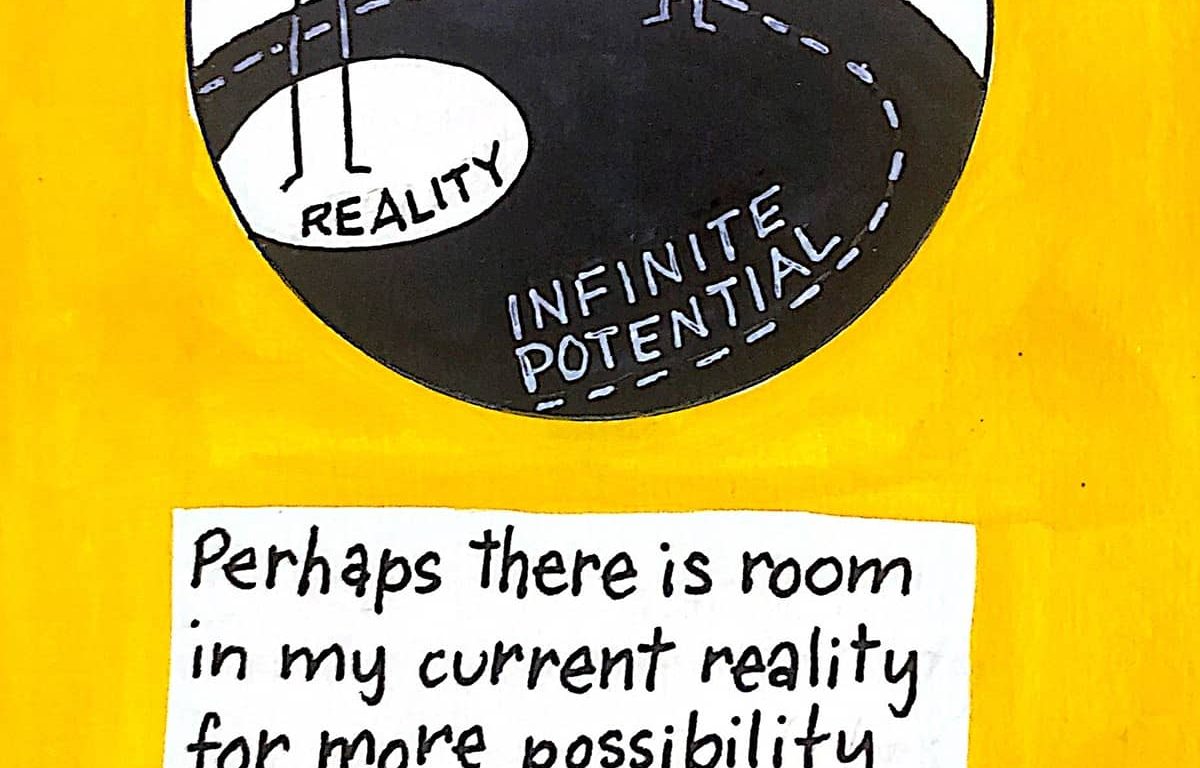 REALITY
INFINITE
POTENTIAL
Perhaps there is room
in my current reality
for more possibility